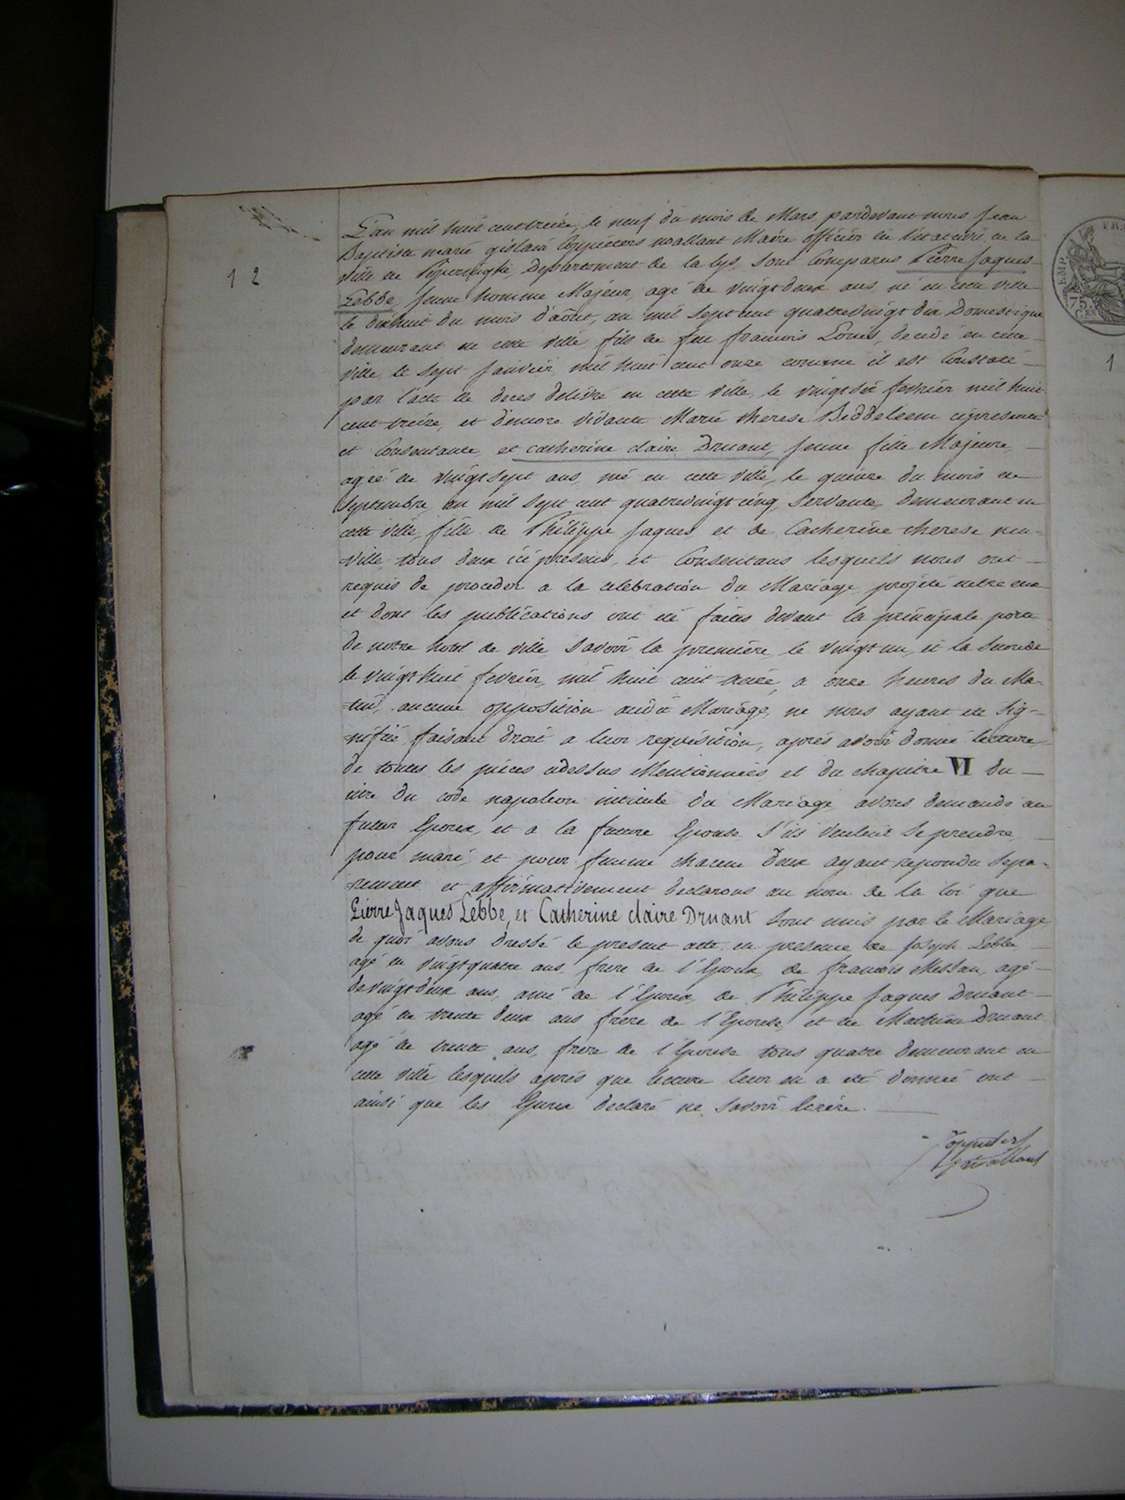 L'an mil huit cent treize, le neuf du mois de Mars pardevant nous Jean
Baptiste marie gislain Coppieters wallant Maire officier de l'etat civil de la
12
ville de Poperinghe Departement de la lys, sont Comparus Pierre Jaques
Lebbe, jeune homme Majeur, agé de vingt deux ans, né en cette ville
le dixhuit du mois d'août, an mil sept cent quatrevingt dix Domestique
demeurant en cette ville fils de feu francois Louis, decedé en cette
ville, le sept janvier mil huit cent onze comme il est Constaté
par l'acte de deces delivré en cette ville, le vingt six fevrier mil huit
cent treize, et d'encore vivante Marie therese Beddeleem cipresente
et Consentante, et catherine claire Druant, jeune fille Majeure,
agée de vingt sept ans, née en cette ville, le quinze du mois de
Septembre, an mil sept cent quatrevingt cinq, Servante, demeurant en
cette ville, fille de Philippe Jaques et de Catherine therese neu-
ville, tous deux ici présens, et Consentans lesquels nous ont
requis de proceder a la celebration du Mariage projeté entre eux
et dont les publications ont été faites devant la principale porte
de notre hotel de ville Savoir la premiere le vingt un, et la Seconde
le vingt huit fevrier, mil huit cent treize, a onze heures du Ma-
tin, aucune opposition audit Mariage, ne nous ayant été sig-
nifiée faisant droit a leur requisition, après avoir donné lecture
de toutes les pièces cidessus Mentionnées et du chapitre VI du
titre du code napoleon intitulé du Mariage avons demandé au
futur Epoux, et a la future Epouse S'ils veulent Se prendre
pour mari, et pour femme chacun d'eux ayant repondu sepa-
rement et affirmativement declarons au nom de la loi que
Pierre Jaques Lebbe, et Catherine claire Druant Sont unis par le Mariage
de quoi avons dressé le present acte en presence de Joseph Lebbe
agé de vingt quatre ans frere de l'Epoux, de francois Messan, agé
de vingt deux ans, ami de l'Epoux, de Philippe Jaques Druant
agé de trente deux ans frère de l'Epouse, et de Mathieu Druant
agé de trente ans, frere de l'Epouse tous quatre demeurant en
cette ville lesquels après que lecture leur en a été donnée ont
ainsi que les Epoux declaré ne savoir lecrire.
Coppieters
Wallant
75
1